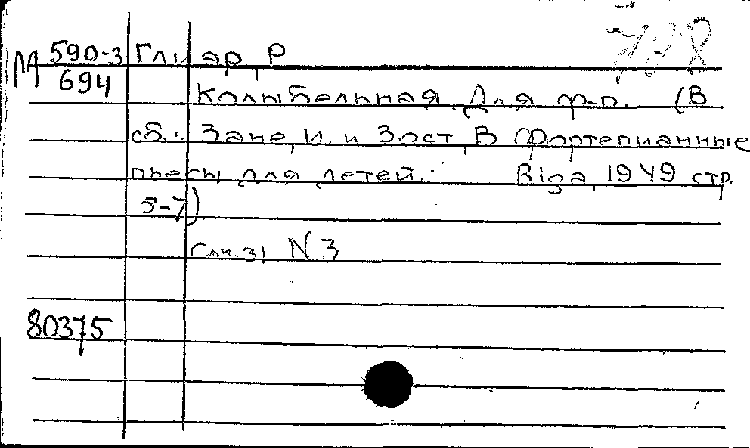 М 590-3 Глиэр, Р
694
Колыбельная. Для ф-п. (В
сб.: Зане, И. и Зост, В Фортепианные
пьесы для детей. Riga, 1949 стр.
5-7)
N 3
80375